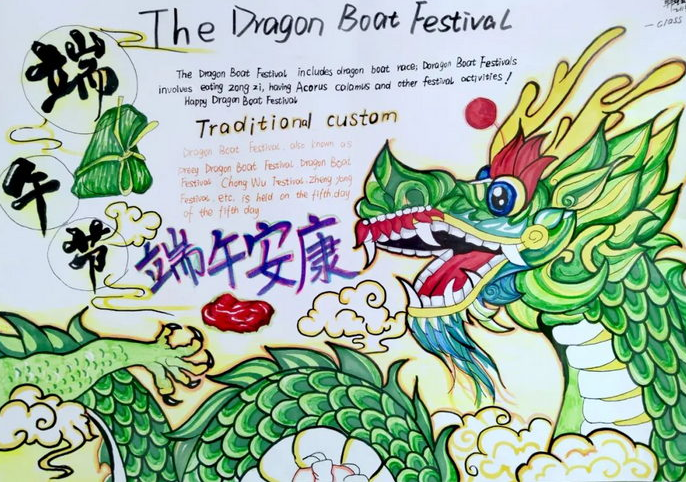 The Dragon Boat Festival
— class
端
午
节
The Dragon Boat Festival includes dragon boat race; Doragon Boat Festivals
involves eating zong zi, having Acorus calamus and other festival activities!
Happy Dragan Boat Festival
Traditional custom
Dragon Boat Festival, also known as
preey Dragon Boat Festival Dragon Boat
Festival Chong Wu Festival. Zheng yang
Festival, etc. is held on the fifth day
of the fifth day
端午安康